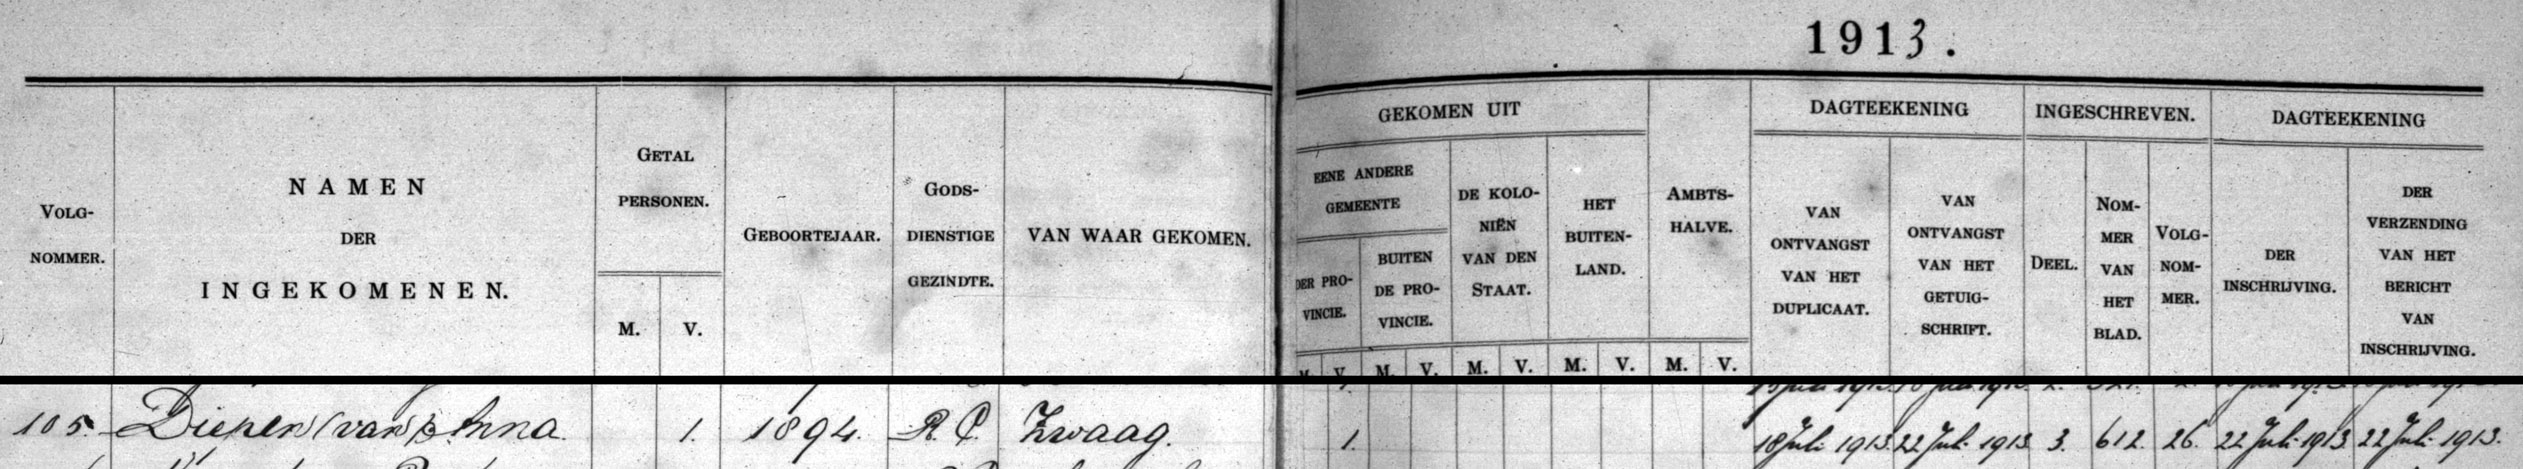 1913.
VOLG-
NOMMER.
NAMEN
DER
INGEKOMENEN.
GETAL
PERSONEN.
M. V.
GEBOORTEJAAR.
GODS-
DIENSTIGE
GEZINDTE.
VAN WAAR GEKOMEN.
GEKOMEN UIT
EENE ANDERE
GEMEENTE
DER PRO-
VINCIE.
M. V.
BUITEN
DE PRO-
VINCIE.
M. V.
DE KOLO-
NIËN
VAN DEN
STAAT.
M. V.
HET
BUITEN-
LAND.
M. V.
AMBTS-
HALVE.
M. V.
DAGTEEKENING
VAN
ONTVANGST
VAN HET
DUPLICAAT.
VAN
ONTVANGST
VAN HET
GETUIG-
SCHRIFT.
INGESCHREVEN.
DEEL.
NOM-
MER
VAN
HET
BLAD.
VOLG-
NOM-
MER.
DAGTEEKENING
DER
INSCHRIJVING.
DER
VERZENDING
VAN HET
BERICHT
VAN
INSCHRIJVING.
105. Diepen (van) Anna 1. 1894. R.C. Zwaag. 1. 18 Juli 1913. 22 Juli 1913. 3. 612. 26. 22 Juli 1913 22 Juli 1913.